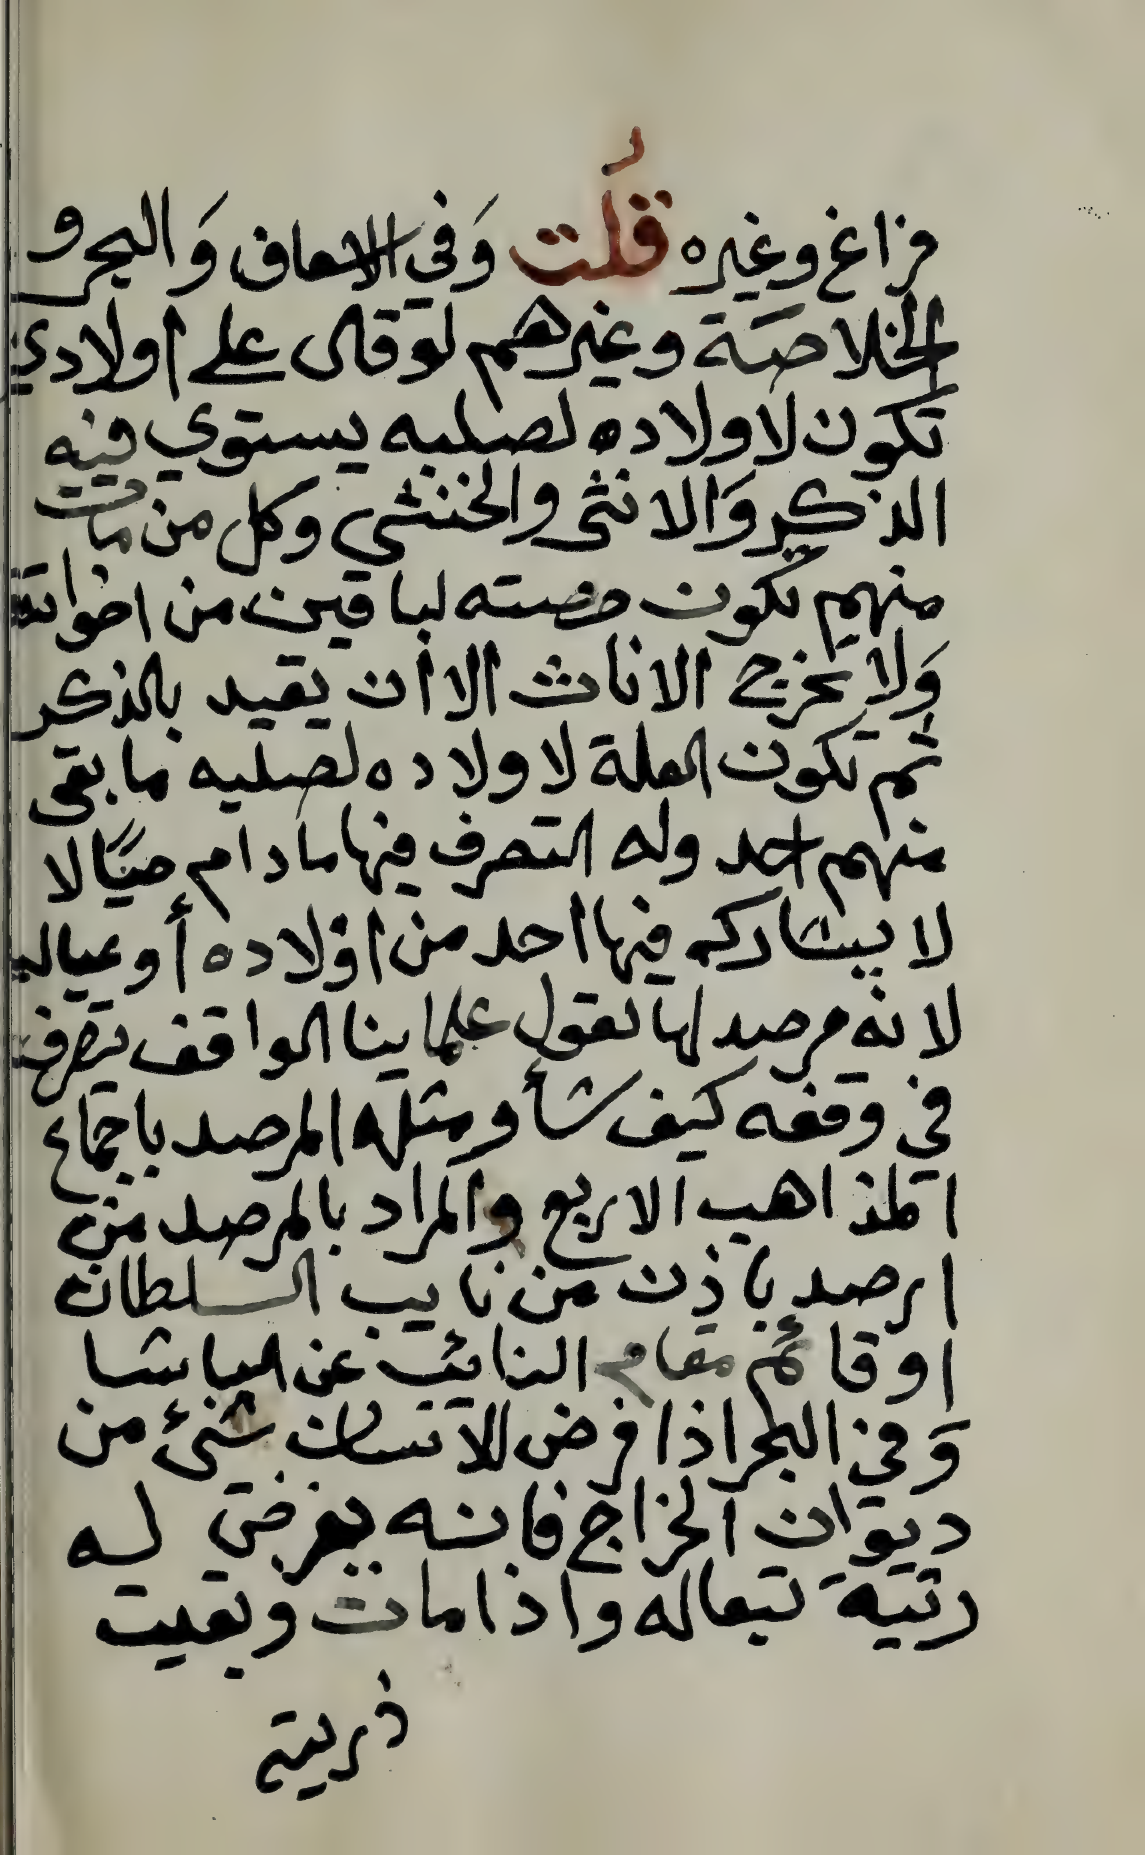 فراغ وغيره قُلت وَفي الاسعاف وَالبحر و
الخلاصَة وغيرهم لو قال على اولادي
تكون لاولاده لصلبه يستوي فيه
الذكر وَالانثى والخنثى وكل من مات
منهم تكون حصته لباقين من اخواته
وَلا يخرج الاناث الا أن يقيد بالذكر
ثم تكون الغلة لاولاده لصلبه ما بقى
منهم احد وله التصرف فيها مادام حيًا لا
لا يشاركه فيها احد من اوْلاده أو عياله
لانه مرصد لها لقول علماينا الواقف يتصرف
في وقفه كيف شأ ومثله المرصد باجماع
المذاهب الاربع والمراد بالمرصد من
ارصد باذن من نايب السلطان
او قائم مقام النائب عن الباشا
وَفي البحر اذا فرض للانسان شئ من
ديوان الخراج فانه يفرض له
رتبة تبعا له واذا مات وبقيت
ذريته